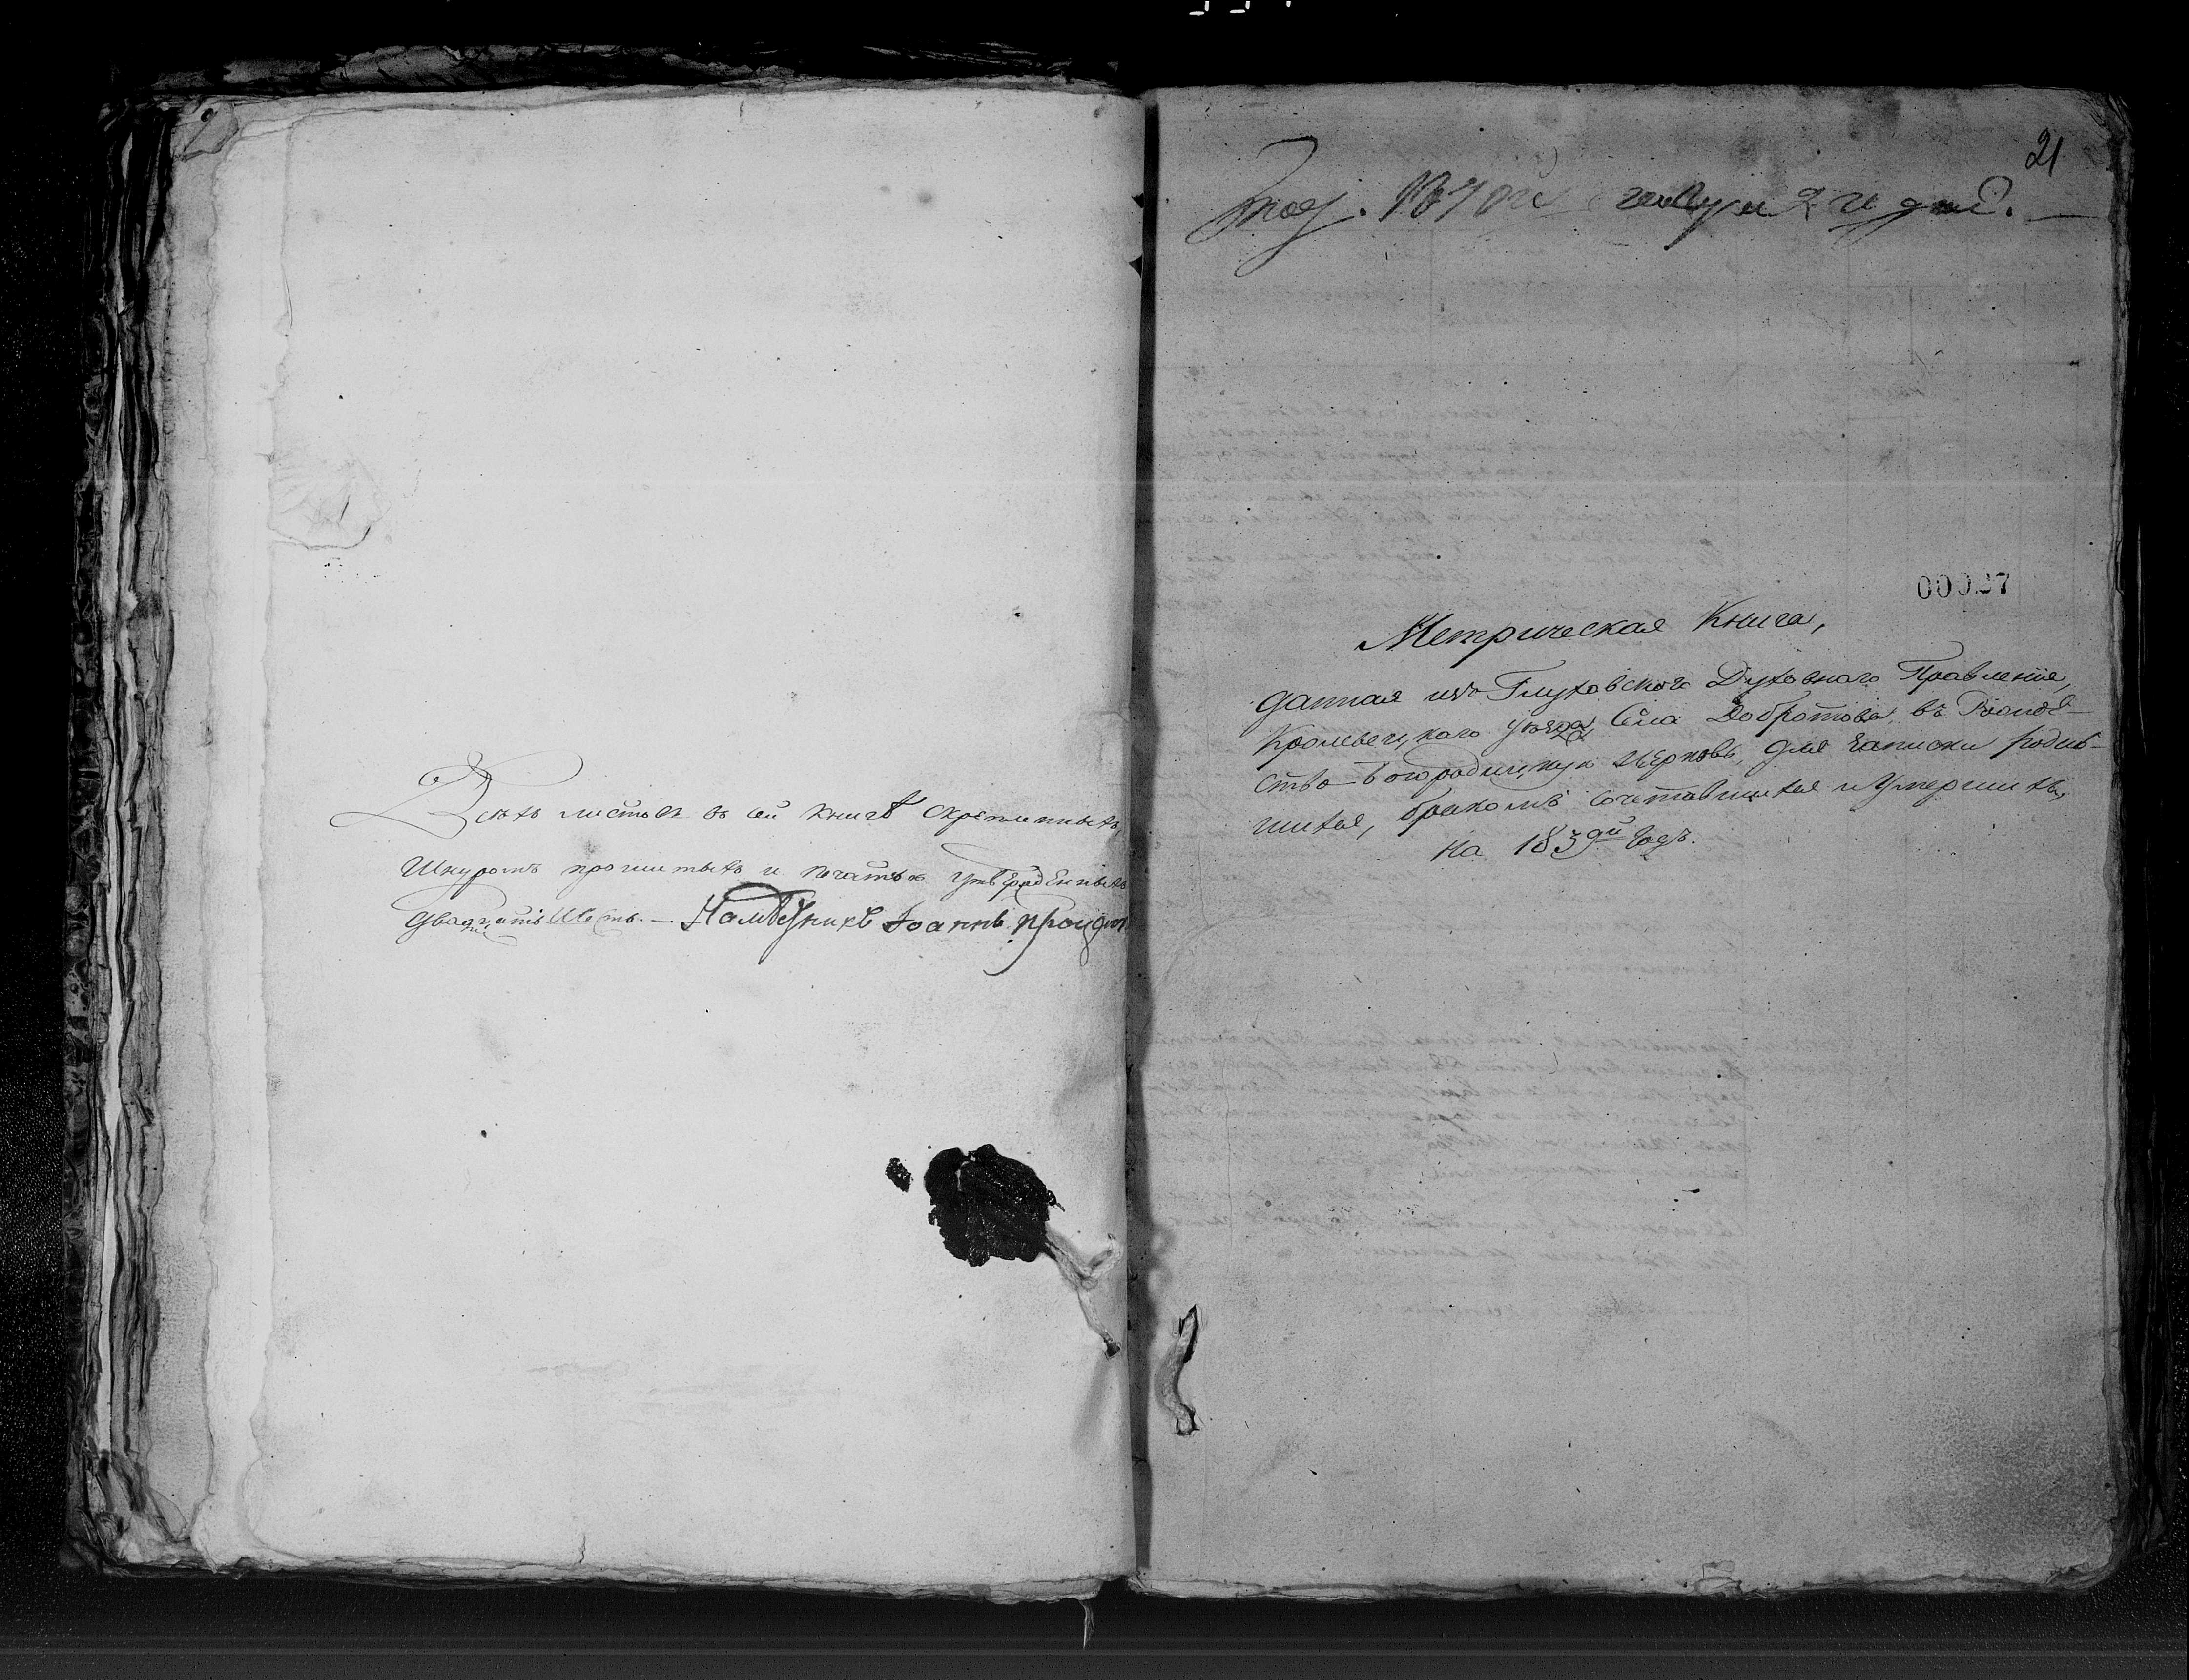 Всѣхъ листовъ въ сей книгѣ скрѣпленныхъ,
Шнуромъ прошитыхъ и печатью утвержденныхъ
двадцать шесть. — Намѣстникъ Іоаннъ
21
1840
00027
Метрическая Книга,
данная изъ Глуховскаго Духовнаго Правленія,
Кролевецкаго уѣзда Села Добротова, въ Рождe-
ство-Богородицкую Церковь, для записки родив-
шихся, бракомъ сочетавшихся и Умершихъ,
на 1839й Годъ.